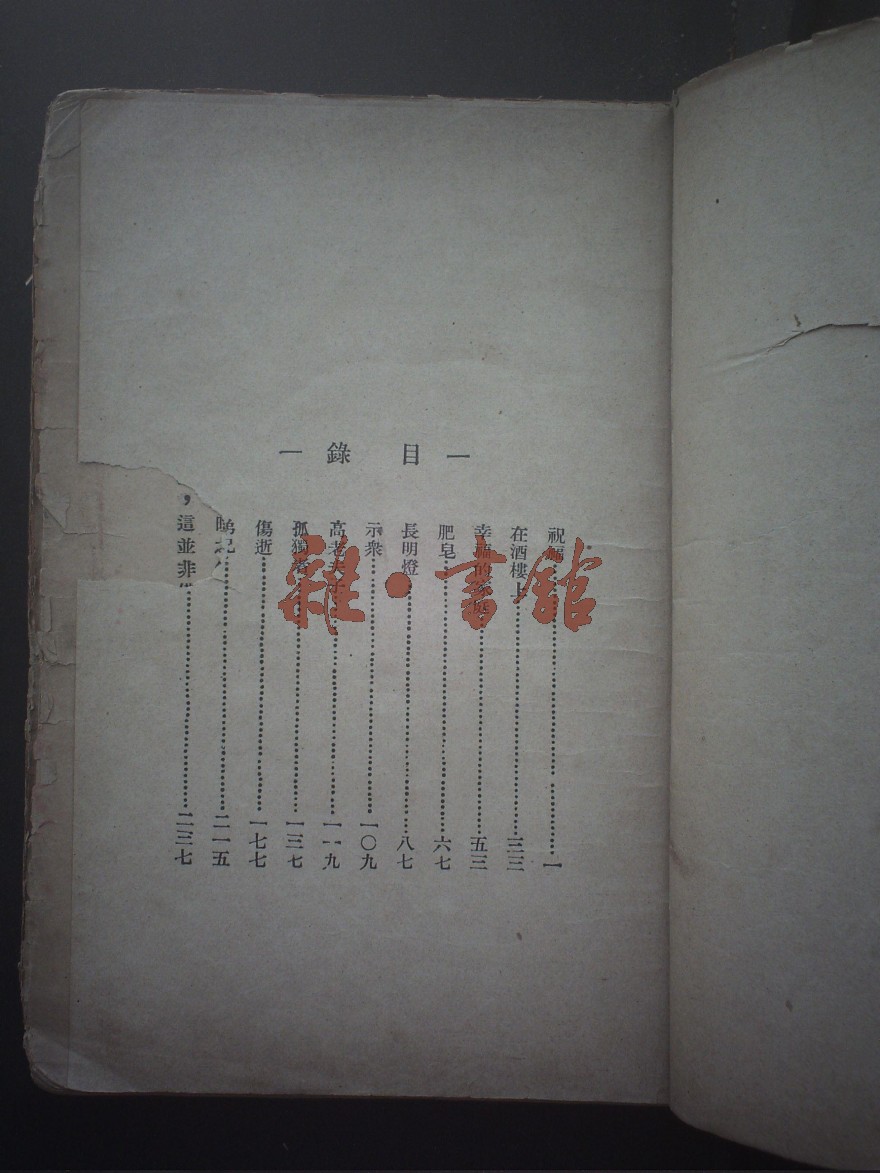 一目錄一
祝福……一
在酒樓上……三三
幸福的家庭……五三
肥皂……六七
長明燈……八七
示衆……一〇九
高老夫子……一一九
孤獨者……一三七
傷逝……一七七
……二一五
，這並非……二三七
雜·書館